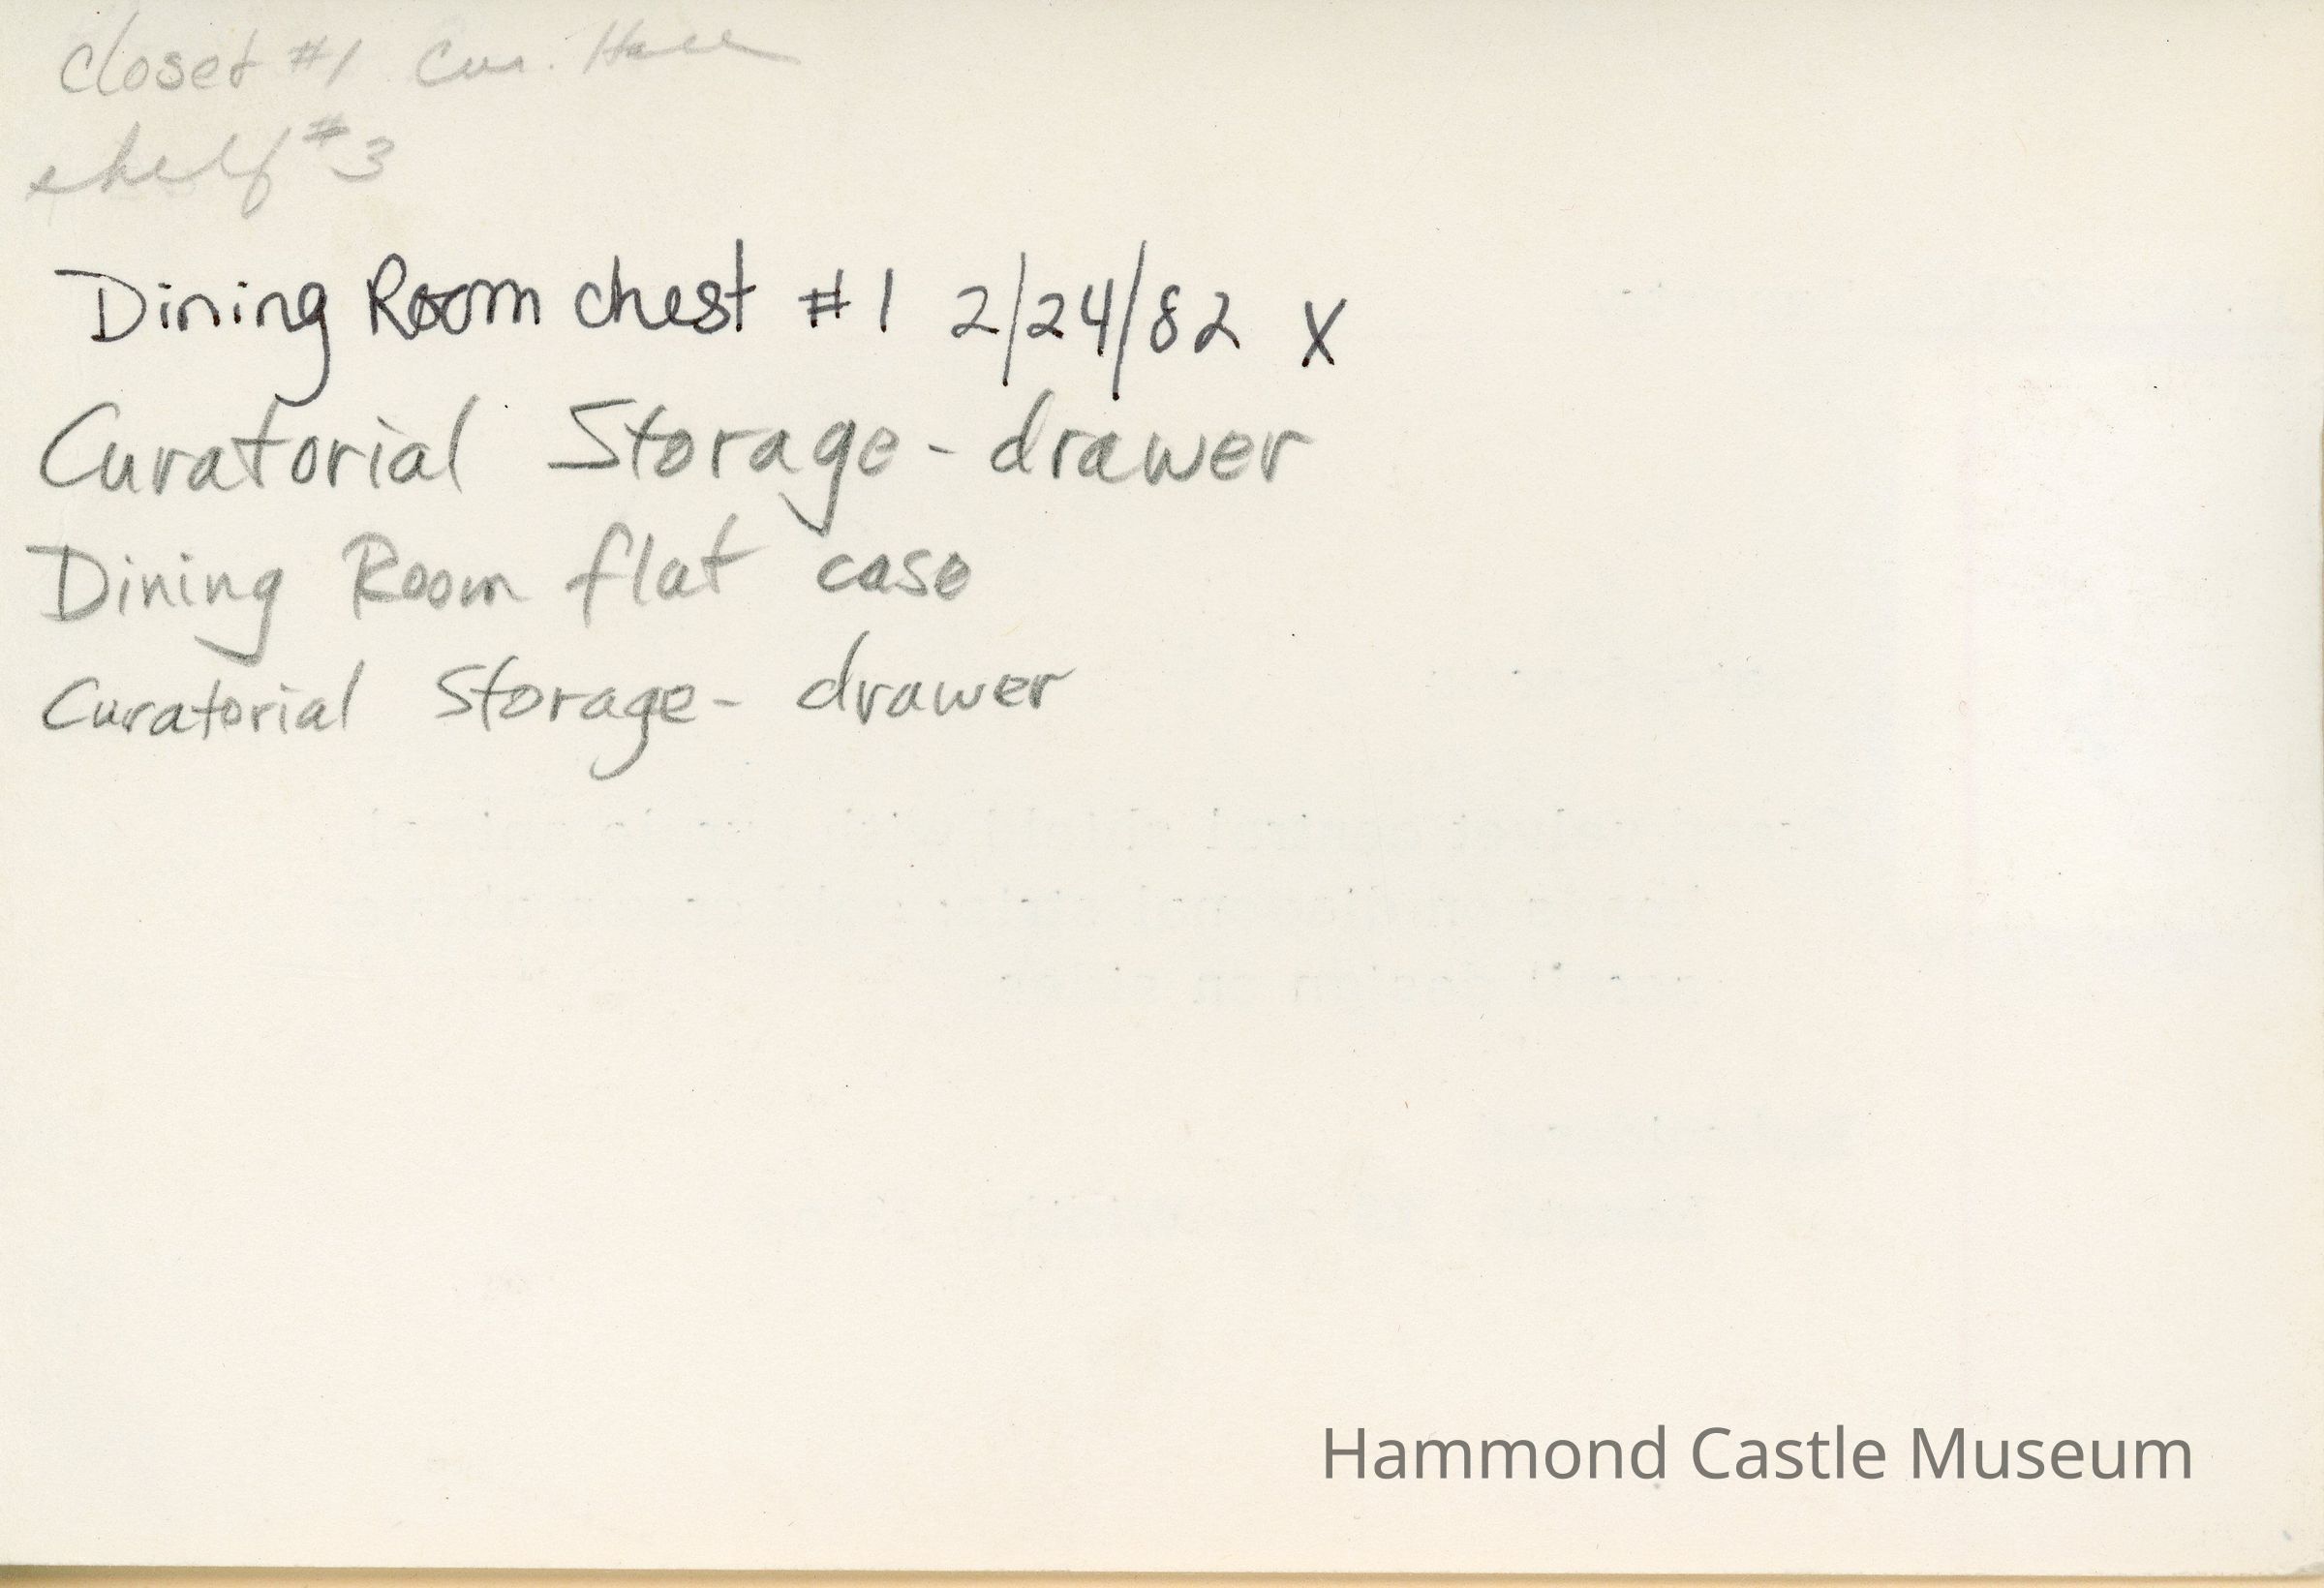 closet #1 Cur. Hall
shelf #3
Dining Room chest #1 2/24/82 X
Curatorial Storage - drawer
Dining Room flat case
Curatorial Storage - drawer
Hammond Castle Museum